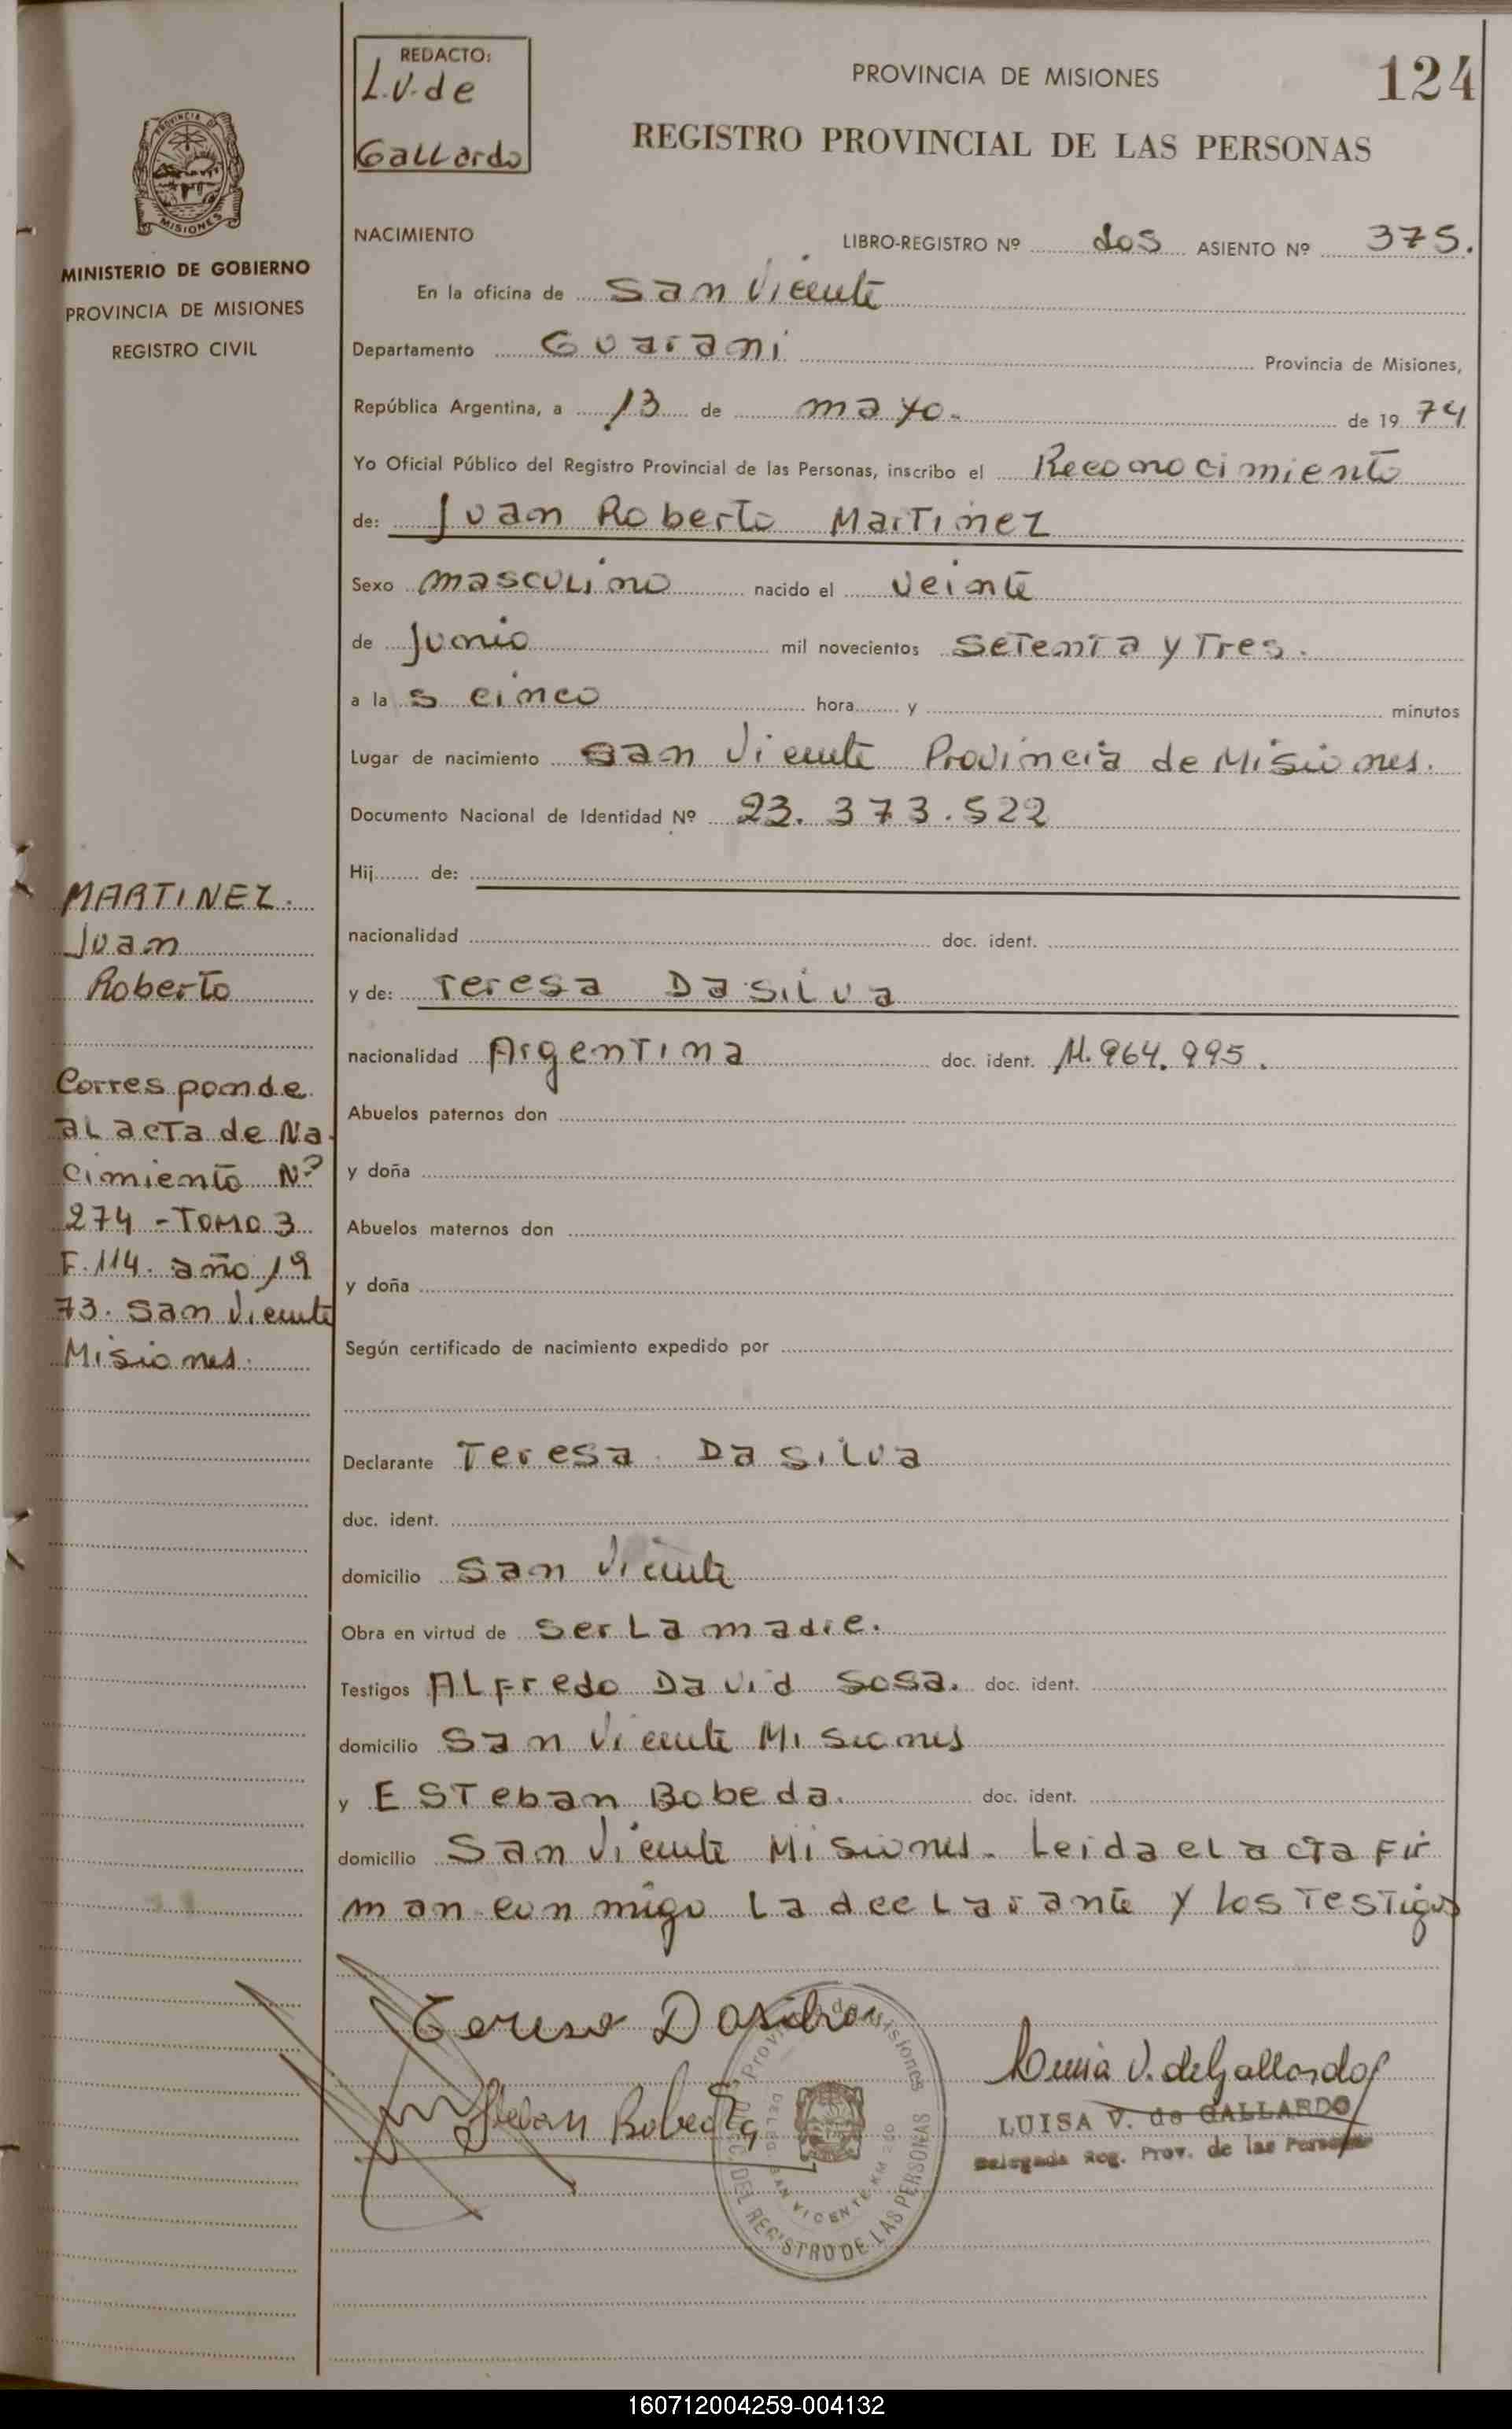 REDACTO:
L.V. de
Gallardo
PROVINCIA DE MISIONES
124
REGISTRO PROVINCIAL DE LAS PERSONAS
PROVINCIA DE
MISIONES
MINISTERIO DE GOBIERNO
PROVINCIA DE MISIONES
REGISTRO CIVIL
NACIMIENTO
LIBRO-REGISTRO Nº dos ASIENTO Nº 375.
En la oficina de San Vicente
Departamento Guarani Provincia de Misiones,
República Argentina, a 13 de mayo. de 19 74
Yo Oficial Público del Registro Provincial de las Personas, inscribo el Reconocimiento
de: Juan Roberto Martinez
Sexo masculino nacido el veinte
de Junio mil novecientos setenta y Tres.
a la s cinco hora y minutos
Lugar de nacimiento San Vicente Provincia de Misiones.
Documento Nacional de Identidad Nº 23.373.522
Hij de:
nacionalidad doc. ident.
y de: Teresa Da Silva
nacionalidad Argentina doc. ident. 11.964.995.
Abuelos paternos don
y doña
Abuelos maternos don
y doña
Según certificado de nacimiento expedido por
Declarante Teresa Da Silva
doc. ident.
domicilio San Vicente
Obra en virtud de ser La madre.
Testigos Alfredo David Sosa. doc. ident.
domicilio San Vicente Misiones
y Esteban Bobeda. doc. ident.
domicilio San Vicente Misiones. Leida el acta fir
man con migo La declarante y los Testigos
MARTINEZ.
Juan
Roberto
Corresponde
al acta de Na
cimiento Nº
274 - Tomo 3
F. 114. año 19
73. San Vicente
Misiones.
Teresa Dasilva
Esteban Bobeda
Luisa V. de Gallardo
LUISA V. de GALLARDO
Delegada Reg. Prov. de las Personas
Provincia de Misiones
DIREC. DEL REGISTRO DE LAS PERSONAS
DELEG. SAN VICENTE KM 260
160712004259-004132